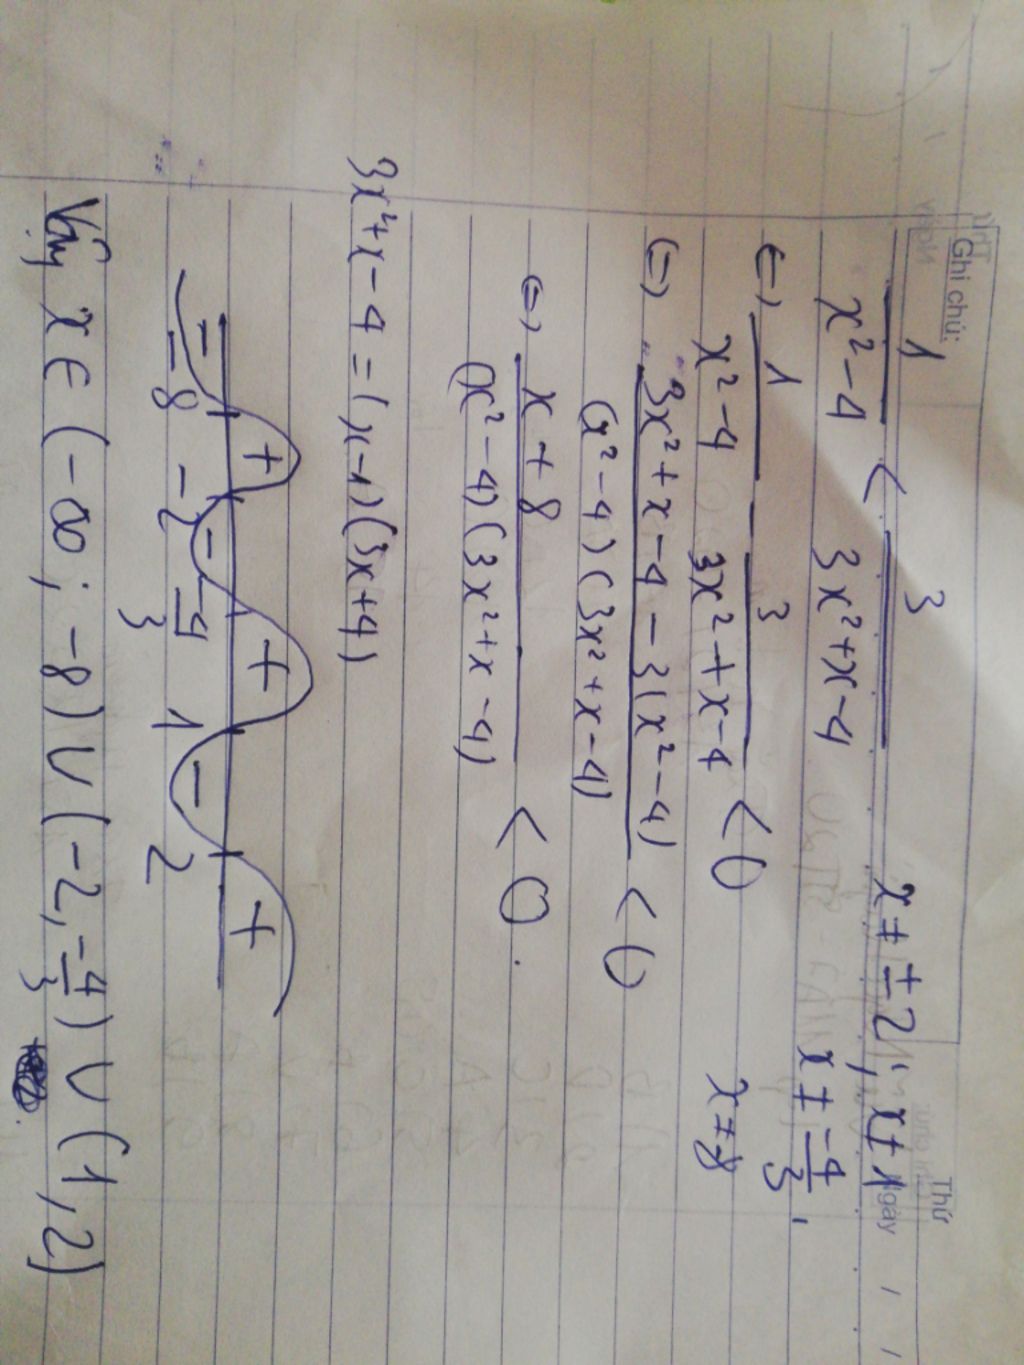 Ghi chú:
Thứ
Ngày
1/(x²-4) < 3/(3x²+x-4)   x ≠ ±2, x ≠ 1
x ≠ -4/3,
⇔ 1/(x²-4) - 3/(3x²+x-4) < 0
⇔ (3x²+x-4-3(x²-4))/((x²-4)(3x²+x-4)) < 0
⇔ (x+8)/((x²-4)(3x²+x-4)) < 0.
=(x-1)(3x+4)
- + - + - +
-8 -2 -4/3 1 2
Vậy x ∈ (-∞; -8) ∪ (-2, -4/3) ∪ (1, 2)